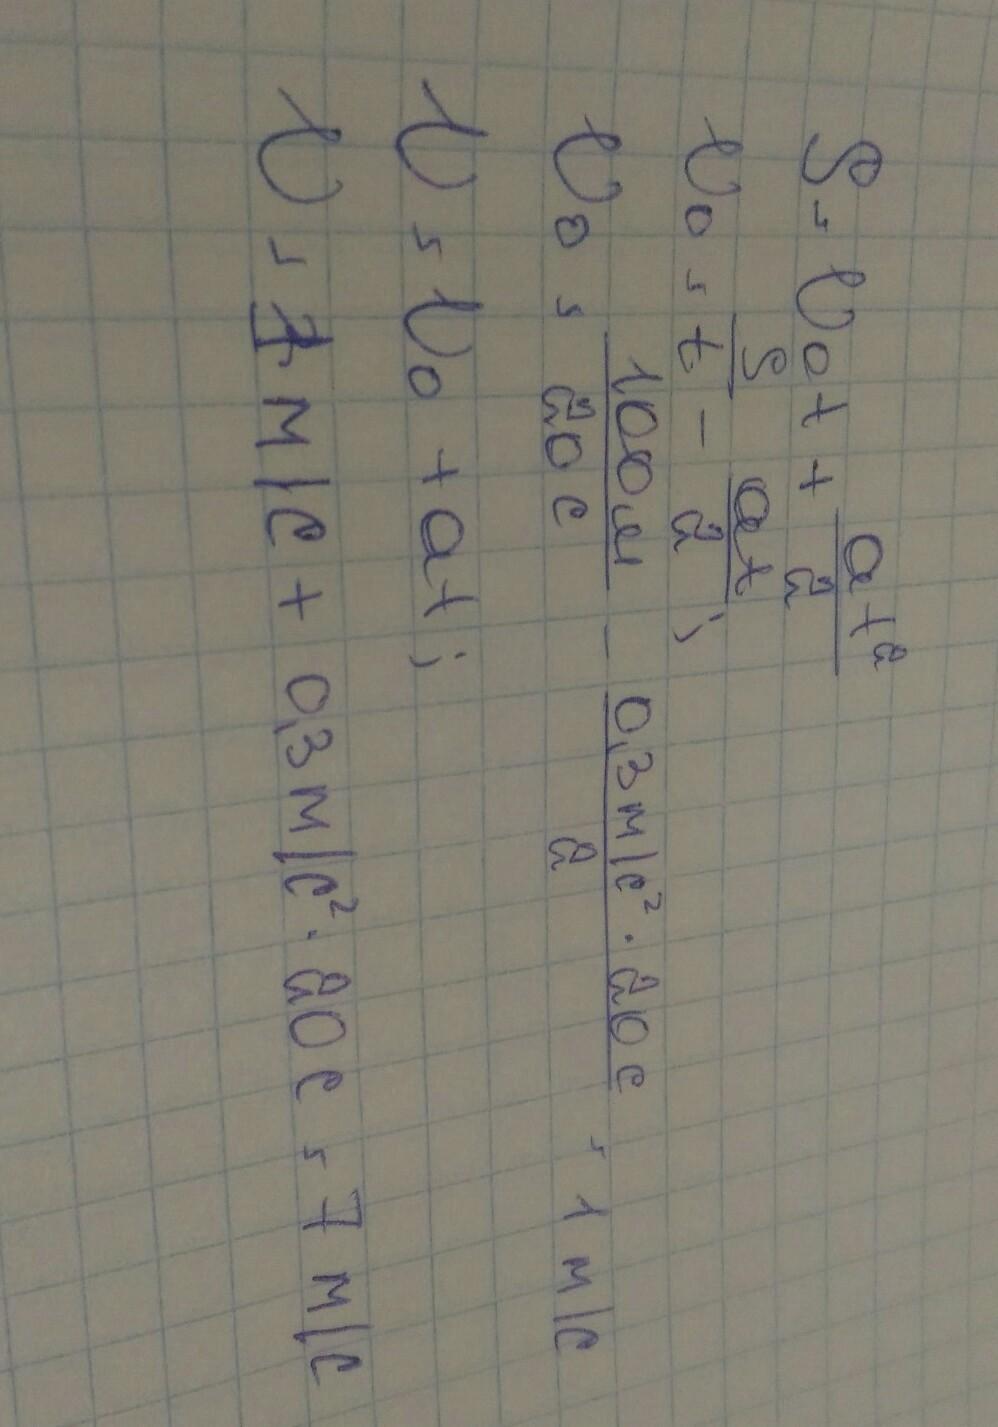 S = υ₀t + at²/2
υ₀ = S/t - at/2;
υ₀ = 100м/20с - 0,3м/с²·20с/2 = 1 м/с
υ = υ₀ + at;
υ = 1 м/с + 0,3м/с²·20с = 7 м/с